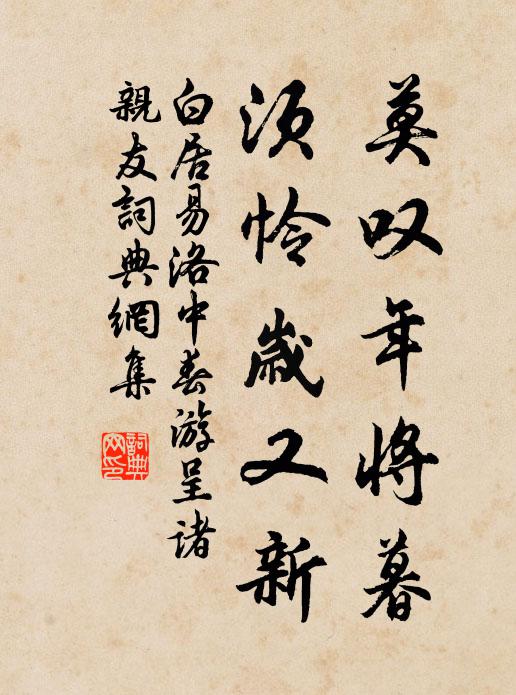 莫叹年将暮
须怜岁又新
白居易洛中春游呈诸
亲友词典网集
词典网印